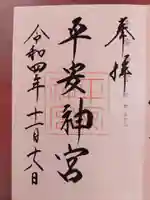 奉拝
平安神宮
令和四年十一月十六日